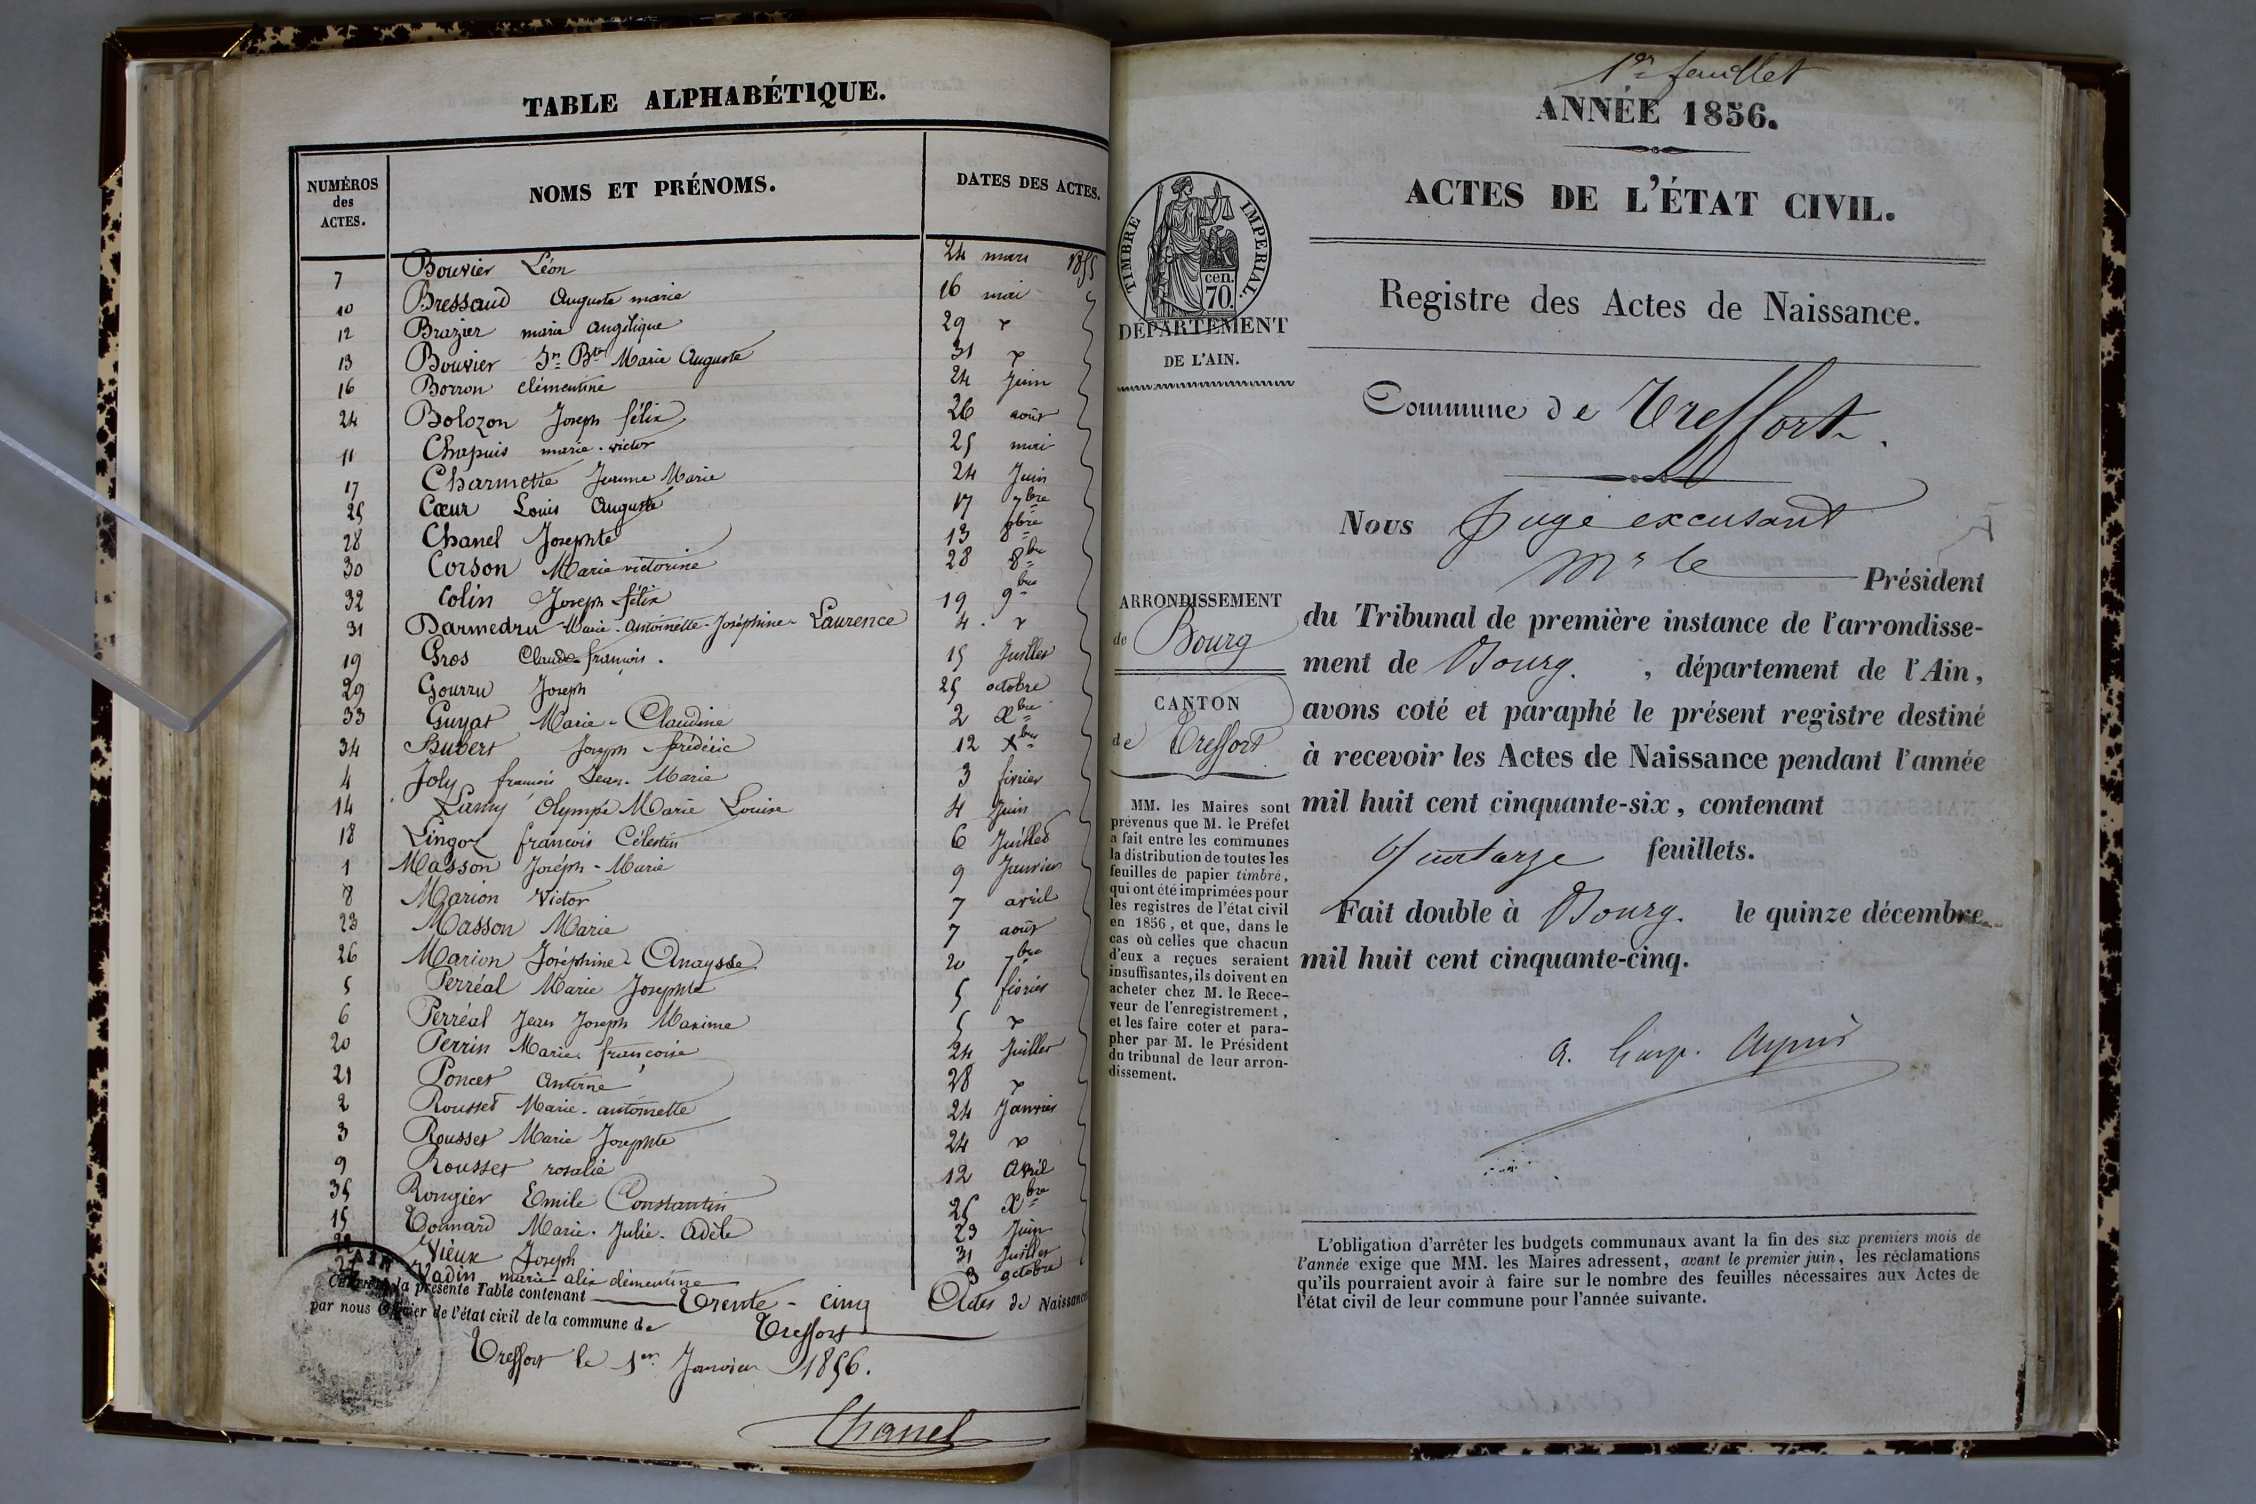 TABLE ALPHABÉTIQUE.
NUMÉROS des ACTES. NOMS ET PRÉNOMS. DATES DES ACTES.
7 Bouvier Léon 24 mars 1855
10 Bressaud Auguste marie 16 mai
12 Brazier marie angélique 29 "
13 Bouvier Jn Bte Marie Auguste 31 "
16 Borron clémentine 24 Juin
24 Bolozon Joseph félix 26 août
11 Chapuis marie-victor 25 mai
17 Charmette Jeanne Marie 24 Juin
25 Cœur Louis Auguste 17 7bre
28 Chanel Josephte 13 8bre
30 Corson Marie victorine 28 8bre
32 Colin Joseph félix 19 9bre
31 Darmedru Marie-antoinette-Joséphine-Laurence 4 "
19 Gros Claude-francois. 15 Juillet
29 Gourru Joseph 25 octobre
33 Guyat Marie-Claudine 2 Xbre
34 Hubert Joseph-frédéric 12 Xbre
4 Joly francois Jean-Marie 3 février
14 Lamy Olympe Marie Louise 4 Juin
18 Lingot francois Célestin 6 Juillet
1 Masson Joseph-Marie 9 Janvier
8 Marion Victor 7 avril
23 Masson Marie 7 août
26 Marion Joséphine-Anaysse 20 7bre
5 Perréal Marie Josephte 5 février
6 Perréal Jean Joseph Maxime 5 "
20 Perrin Marie françoise 24 Juillet
21 Poncet Antoine 28 "
2 Rousset Marie-antoinette 24 Janvier
3 Rousset Marie Josephte 24 "
9 Rousset rosalie 12 Avril
35 Rougier Emile Constantin 25 Xbre
15 Tonnard Marie-Julie-Adèle 23 Juin
22 Vieux Joseph 31 Juillet
27 Vadin marie alix clémentine 3 octobre
la présente Table contenant Trente-cinq Actes de Naissance
par nous Officier de l'état civil de la commune de Treffort
Treffort le 1er Janvier 1856.
Chanel
1er feuillet
ANNÉE 1856.
ACTES DE L'ÉTAT CIVIL.
TIMBRE IMPERIAL.
cen. 70.
DÉPARTEMENT
DE L'AIN.
Registre des Actes de Naissance.
Commune de Treffort.
Nous Juge excusant
Mr le Président
du Tribunal de première instance de l'arrondisse-
ment de Bourg. , département de l'Ain,
avons coté et paraphé le présent registre destiné
à recevoir les Actes de Naissance pendant l'année
mil huit cent cinquante-six, contenant
Quatorze feuillets.
Fait double à Bourg. le quinze décembre
mil huit cent cinquante-cinq.
ARRONDISSEMENT
de Bourg
CANTON
de Treffort
MM. les Maires sont
prévenus que M. le Préfet
a fait entre les communes
la distribution de toutes les
feuilles de papier timbré,
qui ont été imprimées pour
les registres de l'état civil
en 1856, et que, dans le
cas où celles que chacun
d'eux a reçues seraient
insuffisantes, ils doivent en
acheter chez M. le Rece-
veur de l'enregistrement,
et les faire coter et para-
pher par M. le Président
du tribunal de leur arron-
dissement.
L'obligation d'arrêter les budgets communaux avant la fin des six premiers mois de
l'année exige que MM. les Maires adressent, avant le premier juin, les réclamations
qu'ils pourraient avoir à faire sur le nombre des feuilles nécessaires aux Actes de
l'état civil de leur commune pour l'année suivante.